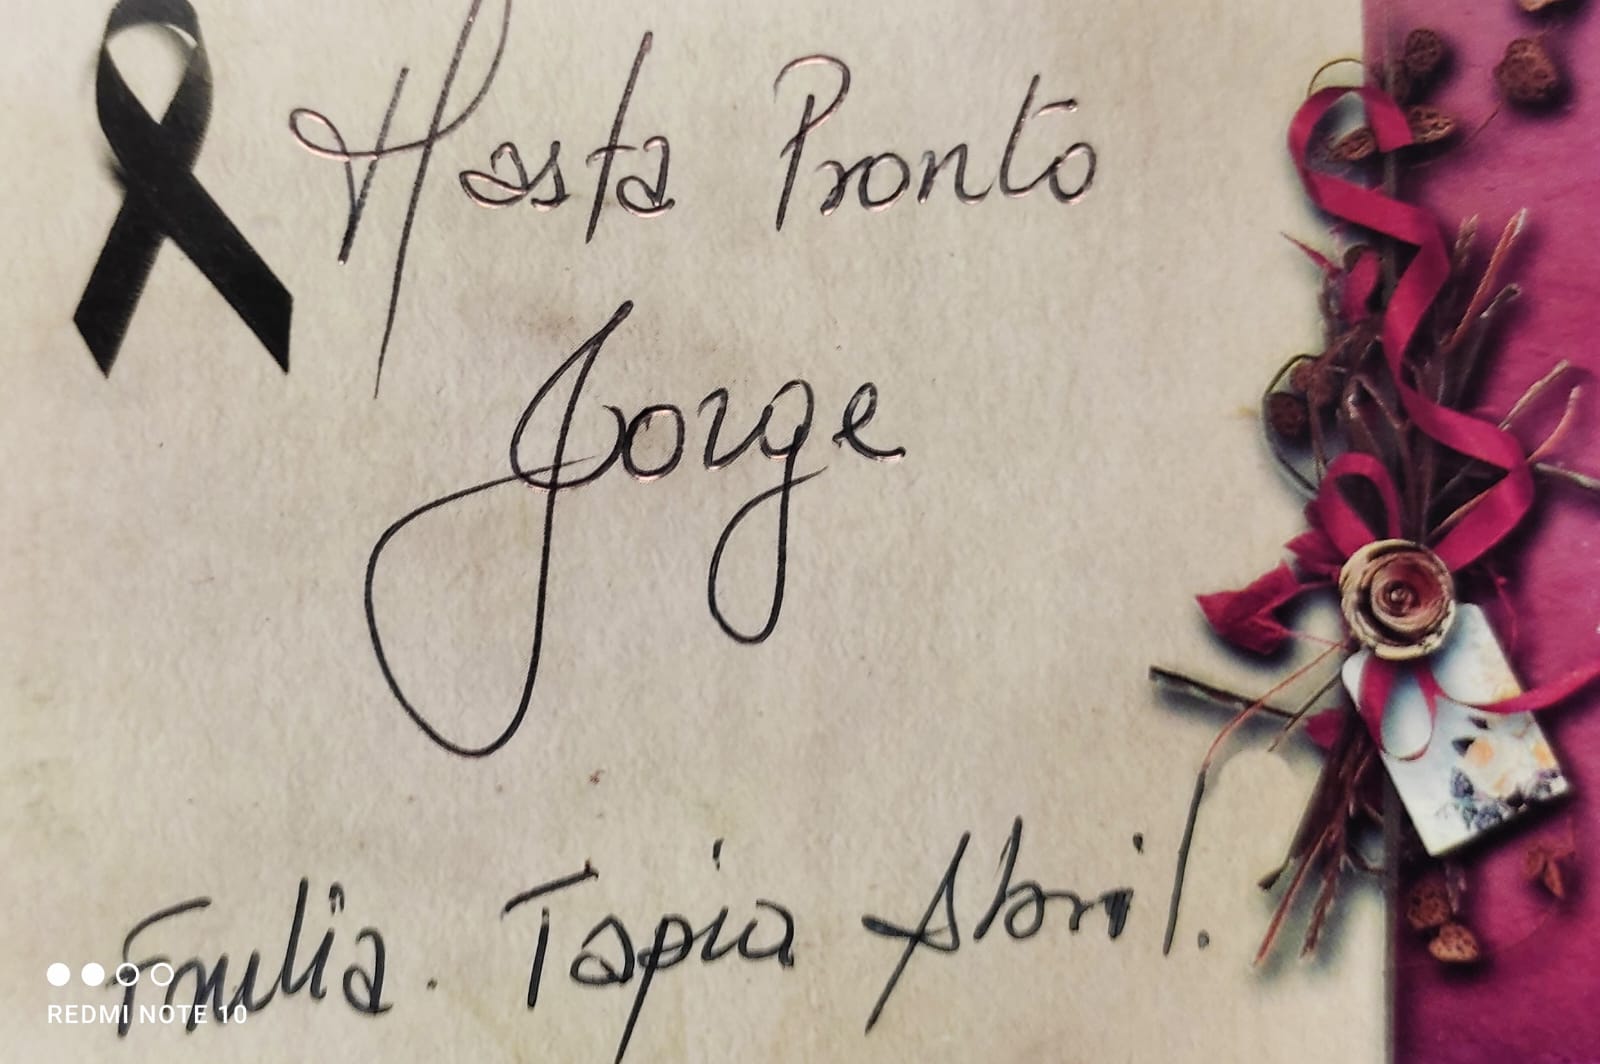 Hasta Pronto
Jorge
Familia. Tapia Abril.
REDMI NOTE 10